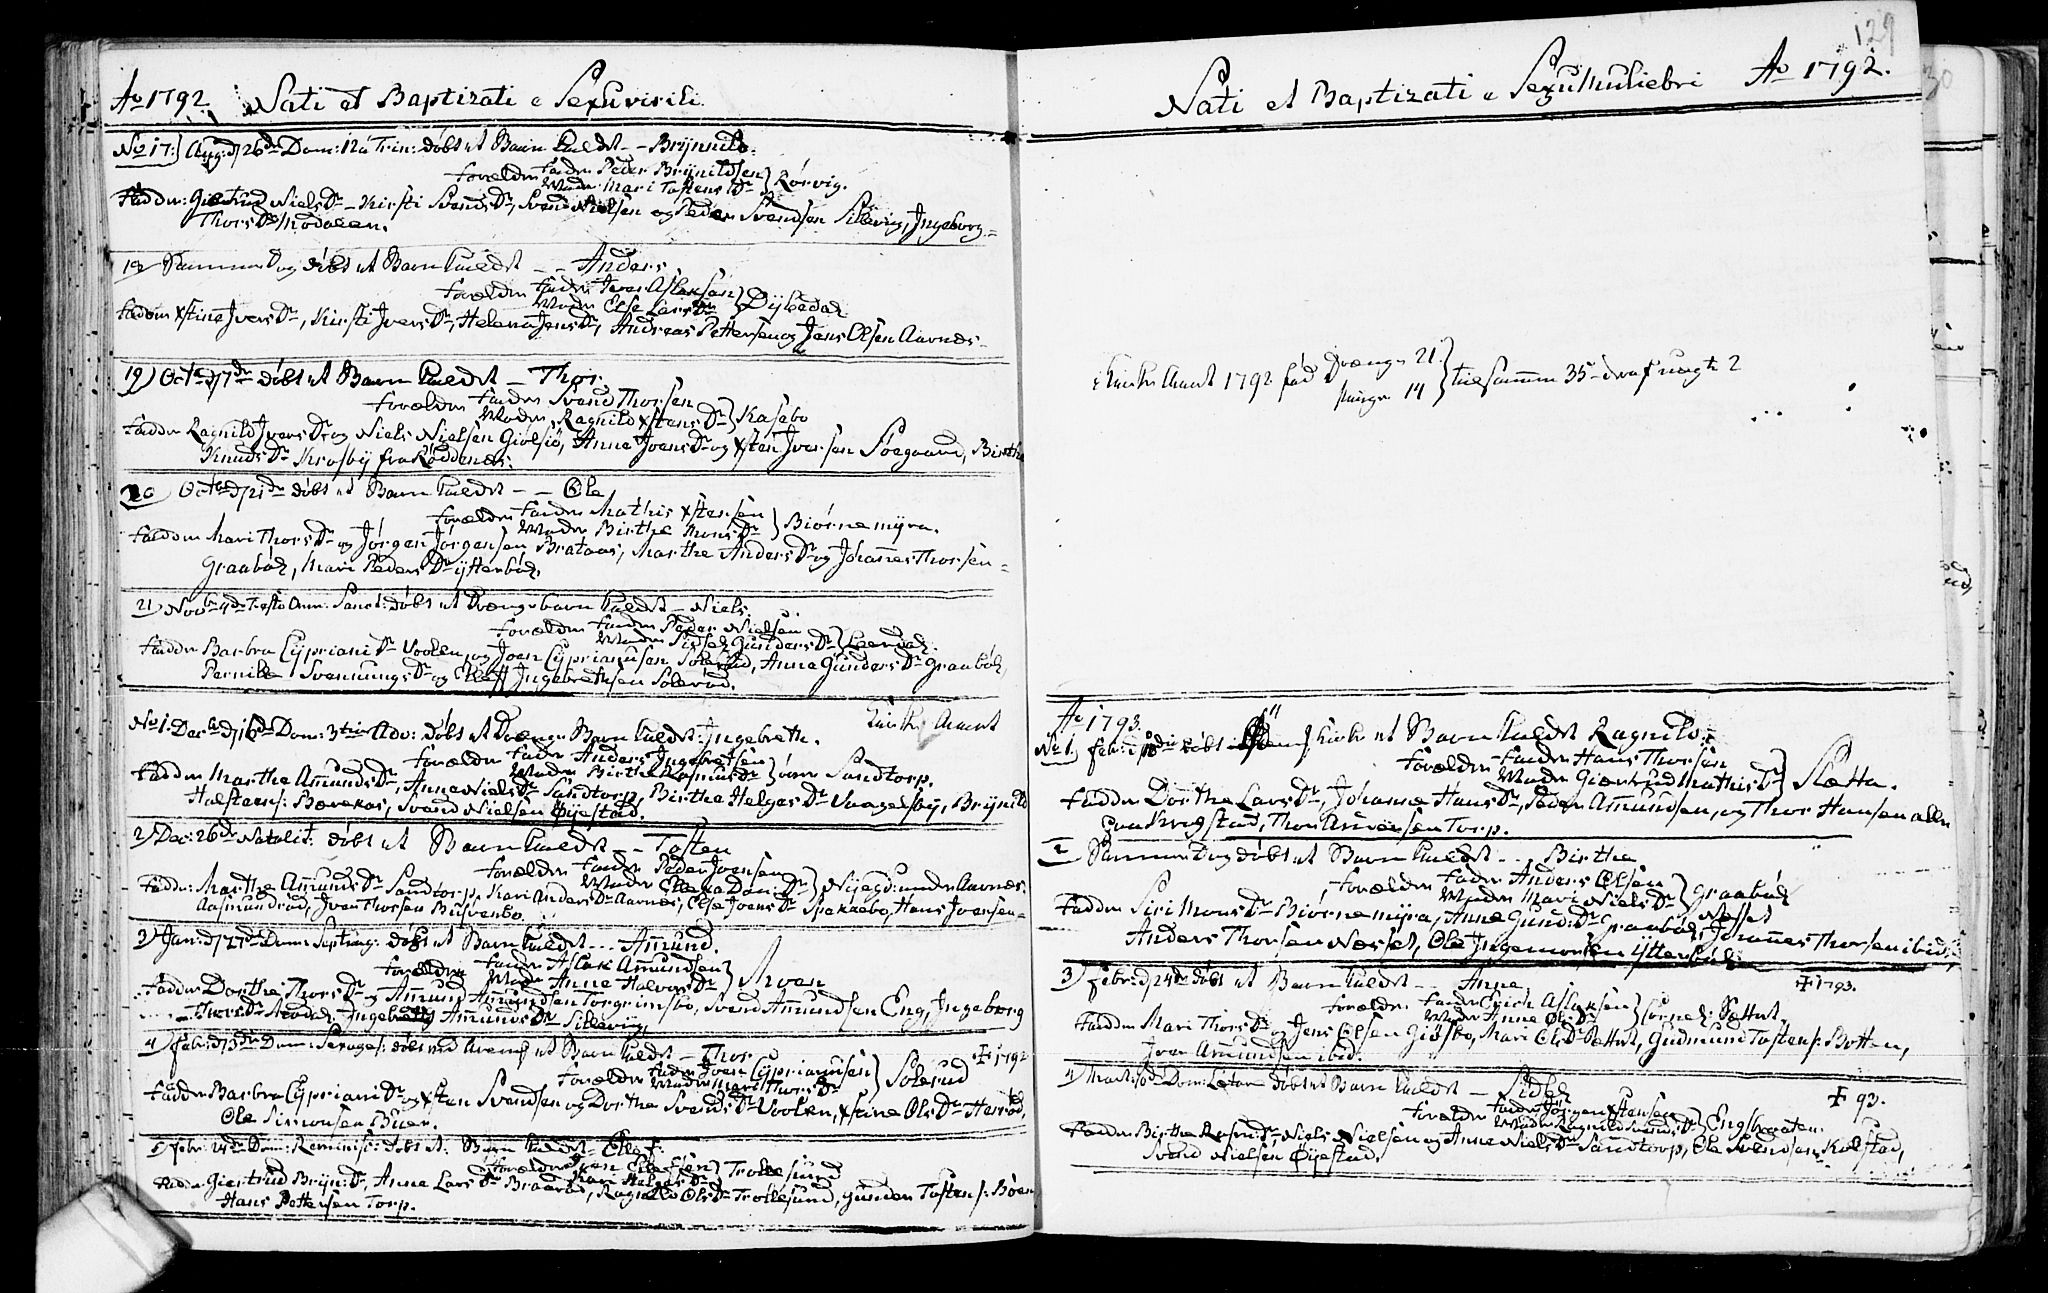 Ao 1792. Nati et Baptizati e Sexu virili.
No 17.) Aug: d 26de Dom: 12a Trin: döbt et Barn kaldet -- Brÿnnild.
Forældre Fader Peder Brÿnildsen
Moder Mari Tostens Dr } Rörvig.
Faddere: Giertrud Niels Dr - Kirsti Svends Dr, Svend Nielsen og Peder Svendsen Sillevig, Ingeborg
Thors Dr Modalen.
18) Samme Dag döbt et Barn kaldet -- Anders
Forældre Fader Iver Aslaksen
Moder Else Lars Dr } Dÿbedal
Faddere Xstine Ivers Dr, Kirsti Ivers Dr, Helena Jens Dr, Andreas Pettersen og Jens Olsen Aarnæs
19) Octr d 7de döbt et Barn kaldet - Thor.
Forældre Fader Svend Thorsen
Moder Ragnild Xstens Dr } Kasebo
Faddere Ragnild Ivers Dr og Niels Nielsen Giolsiö, Anne Ivers Dr og Xsten Iversen Söegaard, Birthe
Knuds Dr Krosbÿ fra Röddenæs.
20 Octr d 21de döbt et Barn kaldet -- Ole
Forældre Fader Mathis Xstensen
Moder Birthe Mons Dr } Biörnemÿra.
Faddere Mari Thors Dr og Jörgen Jörgensen Brataas, Marthe Anders Dr og Johannes Thorsen
Graaböl, Mari Peders Dr ÿtterböl.
21) Novbr 4de Festo Omn: Sanct: döbt et Drenge barn kaldet - Niels.
Forældre Fader Peder Nielsen
Moder Sidsel Gunders Dr } Leerdal.
Faddere Barbra Cÿpriani Dr Voolen, og Joen Cÿprianusen Solerud, Anne Gunders Dr Graaböl
Pernille Svennungs Dr og Oleff Ingebrethsen Solerud.
Kirke Aaret
No 1. Decbr d 16de Dom: 3tia Adv: döbt et Drenge Barn kaldet: Ingebreth.
Forældre Fader Anders Ingebretsen
Moder Birthe Rasmus Dr } övre Sandtorp.
Faddere Marthe Amunds Dr, Anne Niels Dr Sandtorp, Birthe Helges Dr Vaagelsbÿ, Brÿnild
Halstens: Bærekas, Svend Nielsen Öÿestad.
2) Dec: 26de Natalit: döbt et Barn kaldet -- Tosten
Forældre Fader Peder Joensen
Moder Elena Dani: Dr } Nÿjegd: under Aarnæs.
Faddere: Marthe Amunds Dr Sandtorp, Kari Anders Dr Aarnæs, Else Joens Dr Spækebo, Hans Joensen
Aasmundrud, Iver Thorsen Buserebo.
3) Jan: d 27de Dom: Septuag: döbt et Barn kaldet --- Amund.
Forældre Fader Aslak Amundsen
Moder Anne Halvors Dr } Aroen
Faddere Dorthe Thors Dr og Amund Amundsen Torgrimsbo, Svend Amundsen Eng, Ingeborg
Thors Dr Modal, Ingeborg Amunds Dr Sillevig.
4) Febr: d 3de Dom: Sexages: döbt ved Aremark et Barn kaldet - Thor. ‡ 1792
Forældre Fader Joen Cÿprianusen
Moder Mari Thors Dr } Solerud
Faddere Barbra Cÿpriani Dr og Xsten Svendsen og Dorthe Svends Dr Voolen, Xstine Ols Dr Herröd,
Ole Simonsen Buer.
5) Febr: 24de Dom: Reminisc: döbt et Barn kaldet - Olef.
Forældre Joen Olefsen
Kari Helges Dr } Trollesund
Fad: Giertrud Brÿn: Dr, Anne Lars Dr Braarud, Ragnild Ols Dr Trollesund, Gunder Tostens: Böen
Hans Pettersen Torp.
129
Nati et Baptizati e Sexu Muliebri Ao 1792.
Kirke Aaret 1792 fød Drænge 21.
Piiger 14 } tilsammen 35 - deraf uægte 2
Ao 1793.
No 1) Febr: d döbt Kirke et Barn kaldet Ragnild.
Forældre Fader Hans Thorsen
Moder Giertrud Mathis Dr } Sletta.
Faddere Dorthe Lars Dr, Johanne Hans Dr, Peder Amundsen, og Thor Hansen alle
paa Krogstad, Thor Torp.
2 Samme Dag döbt et Barn kaldet --- Birthe
Forældre Fader Anders Olsen
Moder Mari Niels Dr } Graaböl
Næsset
Faddere Siri Mons Dr Biörnemÿra, Anne Gund: Dr Graaböl, Johannes Thorsen ibid,
Anders Thorsen Næsset, Ole Ingemorsen ÿtterböl.
3) Febr: d 24de döbt et Barn kaldet -- Anne. ‡ 1793.
Forældre Fader Erich Aslaksen
Moder Anne Ols Dr } Sættret.
Faddere Mari Thors Dr og Jens Olsen Giösbo, Mari Ols Dr Sættret, Gudmund Tostens: Botten,
Joen Amundsen ibid.
4) Mart: 10de Dom: Letare döbt et Barn kaldet - Sidsel ‡ 93.
Forældre Fader Jörgen Xstensen
Moder Ragnild Svends Dr } Engbraaten.
Faddere Birthe Rasm: Dr Niels Nielsen og Anne Niels Dr Sandtorp, Ole Svendsen Kolstad,
Svend Nielsen Öÿestad.